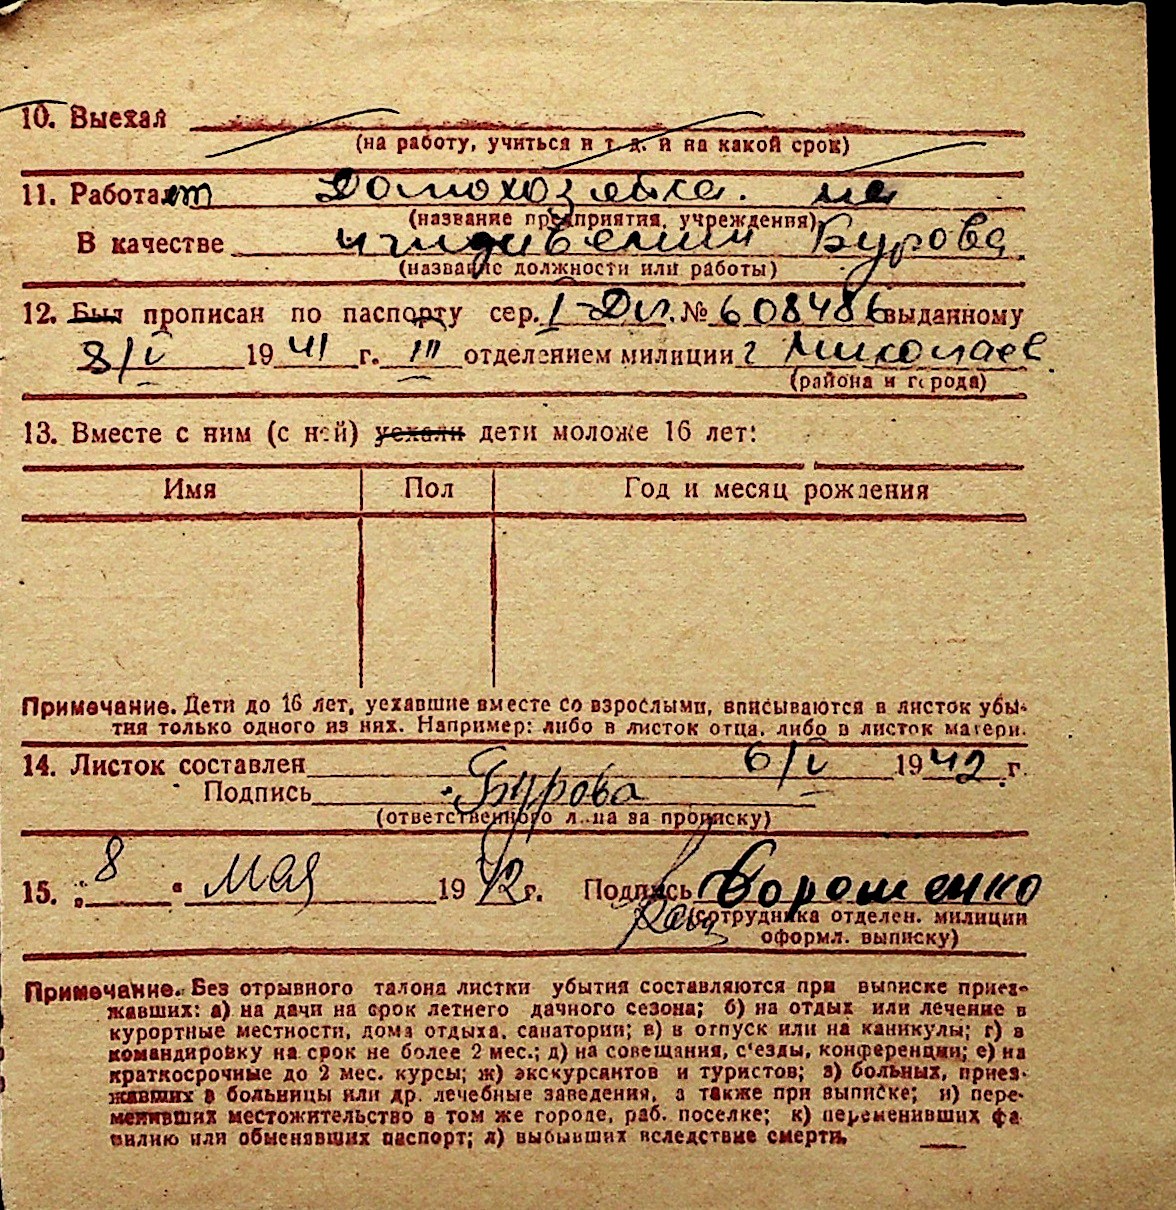 10. Выехал
(на работу, учиться и т. д. и на какой срок)
11. Работает Домохозяйка. на
(название предприятия, учреждения)
В качестве иждивении Бурова
(название должности или работы)
12. Был прописан по паспорту сер. I-ДИ. № 608486 выданному
8/V 1941 г. III отделением милиции г Николаев
(района и города)
13. Вместе с ним (с ней) уехали дети моложе 16 лет:
Имя Пол Год и месяц рождения
Примечание. Дети до 16 лет, уехавшие вместе со взрослыми, вписываются в листок убы-
тия только одного из них. Например: либо в листок отца, либо в листок матери.
14. Листок составлен 6/V 1942 г.
Подпись Бурова
(ответственного лица за прописку)
15. „8" мая 1942 г. Подпись Ворошенко
(сотрудника отделен. милиции
оформл. выписку)
Примечание. Без отрывного талона листки убытия составляются при выписке приез-
жавших: а) на дачи на срок летнего дачного сезона; б) на отдых или лечение в
курортные местности, дома отдыха, санатории; в) в отпуск или на каникулы; г) в
командировку на срок не более 2 мес.; д) на совещания, с'езды, конференции; е) на
краткосрочные до 2 мес. курсы; ж) экскурсантов и туристов; з) больных, приез-
жавших в больницы или др. лечебные заведения, а также при выписке; и) пере-
менивших местожительство в том же городе, раб. поселке; к) переменивших фа
милию или обменявших паспорт; л) выбывших вследствие смерти.